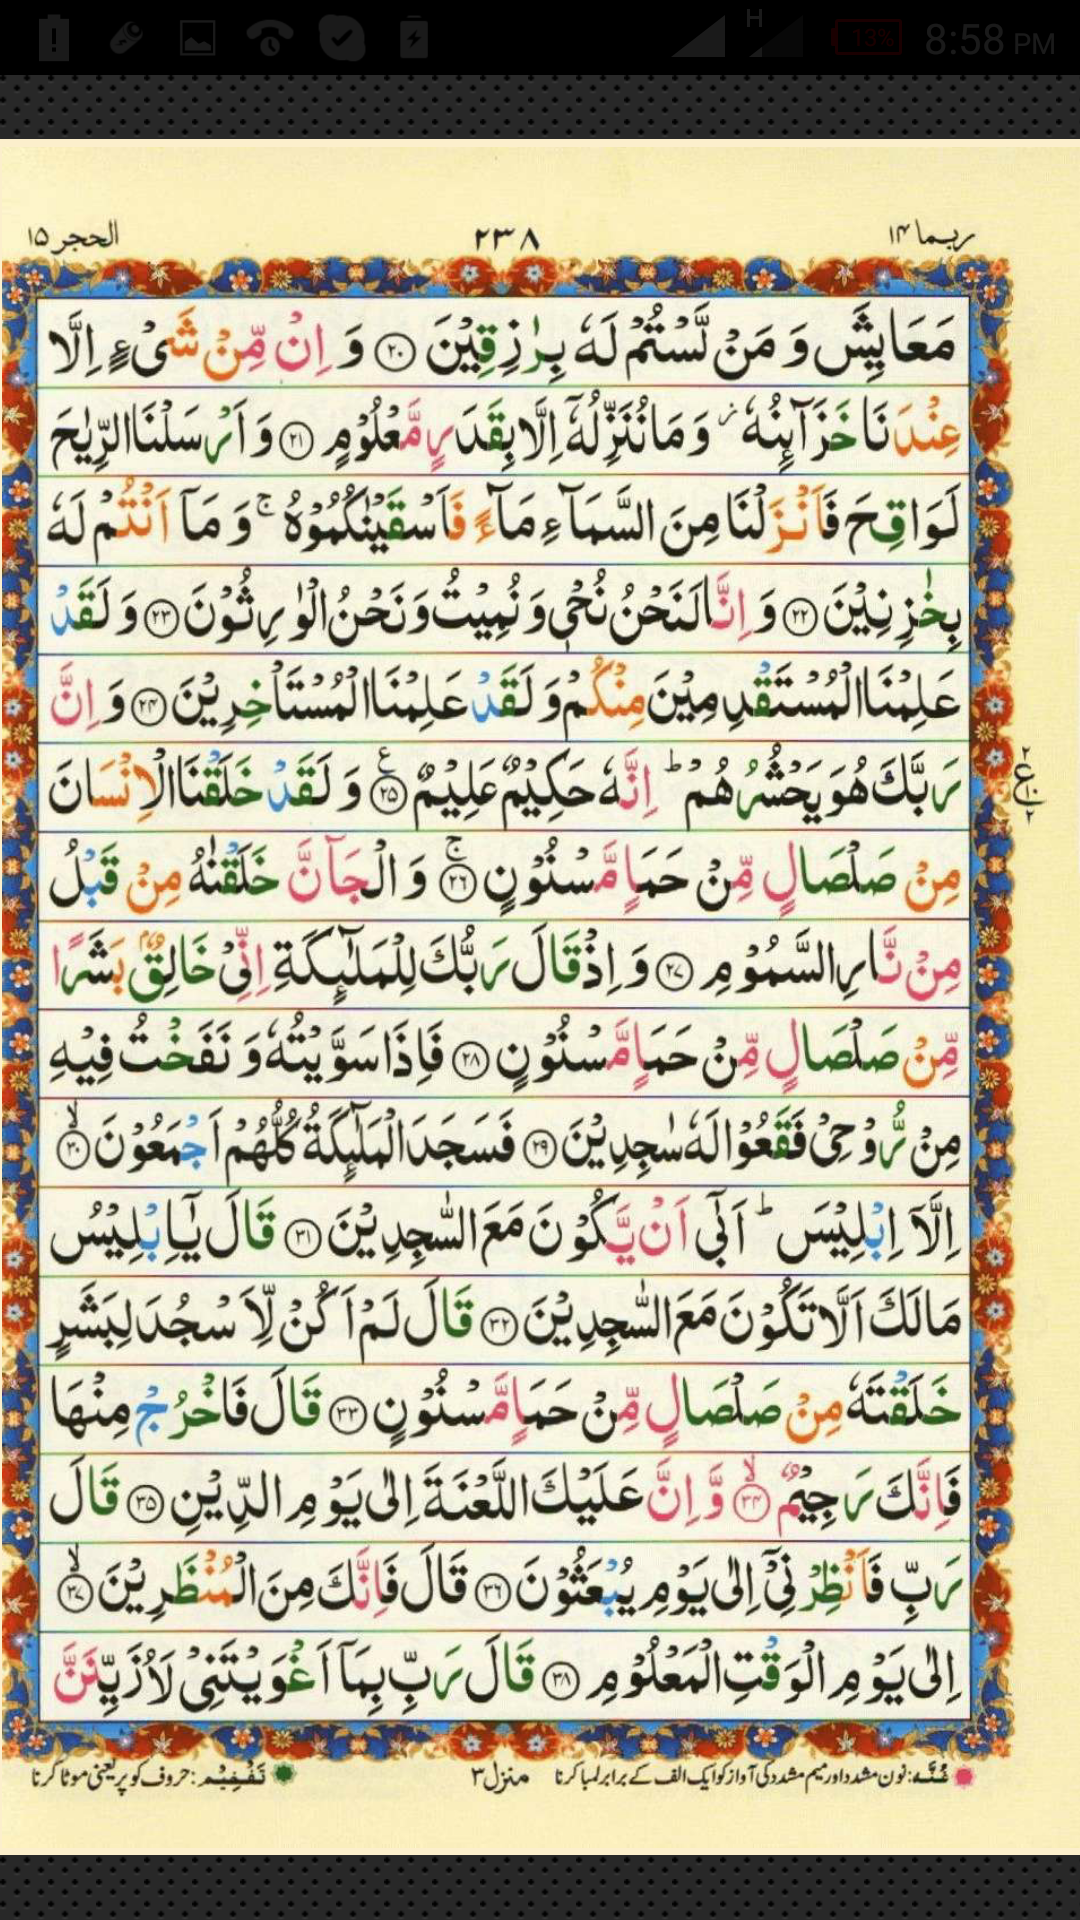 H 13% 8:58 PM
ربما ١٤ ٢٣٨ الحجر ١٥
مَعَايِشَ وَ مَنْ لَّسْتُمْ لَهٗ بِرٰزِقِيْنَ ﴿۲۰﴾ وَ اِنْ مِّنْ شَیْءٍ اِلَّا
عِنْدَنَا خَزَآئِنُهٗ ؗ وَ مَا نُنَزِّلُهٗۤ اِلَّا بِقَدَرٍ مَّعْلُوْمٍ ﴿۲۱﴾ وَ اَرْسَلْنَا الرِّيٰحَ
لَوَاقِحَ فَاَنْزَلْنَا مِنَ السَّمَآءِ مَآءً فَاَسْقَيْنٰكُمُوْهُ ۚ وَ مَاۤ اَنْتُمْ لَهٗ
بِخٰزِنِيْنَ ﴿۲۲﴾ وَ اِنَّا لَنَحْنُ نُحْیٖ وَ نُمِيْتُ وَ نَحْنُ الْوٰرِثُوْنَ ﴿۲۳﴾ وَ لَقَدْ
عَلِمْنَا الْمُسْتَقْدِمِيْنَ مِنْكُمْ وَ لَقَدْ عَلِمْنَا الْمُسْتَاْخِرِيْنَ ﴿۲۴﴾ وَ اِنَّ
رَبَّكَ هُوَ يَحْشُرُهُمْ ؕ اِنَّهٗ حَكِيْمٌ عَلِيْمٌ ﴿۲۵﴾ ع وَ لَقَدْ خَلَقْنَا الْاِنْسَانَ
مِنْ صَلْصَالٍ مِّنْ حَمَاٍ مَّسْنُوْنٍ ﴿ۚ۲۶﴾ وَ الْجَآنَّ خَلَقْنٰهُ مِنْ قَبْلُ
مِنْ نَّارِ السَّمُوْمِ ﴿۲۷﴾ وَ اِذْ قَالَ رَبُّكَ لِلْمَلٰٓئِكَةِ اِنِّیْ خَالِقٌۢ بَشَرًا
مِّنْ صَلْصَالٍ مِّنْ حَمَاٍ مَّسْنُوْنٍ ﴿۲۸﴾ فَاِذَا سَوَّيْتُهٗ وَ نَفَخْتُ فِيْهِ
مِنْ رُّوْحِیْ فَقَعُوْا لَهٗ سٰجِدِيْنَ ﴿۲۹﴾ فَسَجَدَ الْمَلٰٓئِكَةُ كُلُّهُمْ اَجْمَعُوْنَ ﴿ۙ۳۰﴾
اِلَّاۤ اِبْلِيْسَ ؕ اَبٰۤی اَنْ يَّكُوْنَ مَعَ السّٰجِدِيْنَ ﴿۳۱﴾ قَالَ يٰۤاِبْلِيْسُ
مَا لَكَ اَلَّا تَكُوْنَ مَعَ السّٰجِدِيْنَ ﴿۳۲﴾ قَالَ لَمْ اَكُنْ لِّاَسْجُدَ لِبَشَرٍ
خَلَقْتَهٗ مِنْ صَلْصَالٍ مِّنْ حَمَاٍ مَّسْنُوْنٍ ﴿۳۳﴾ قَالَ فَاخْرُجْ مِنْهَا
فَاِنَّكَ رَجِيْمٌ ﴿ۙ۳۴﴾ وَّ اِنَّ عَلَيْكَ اللَّعْنَةَ اِلٰی يَوْمِ الدِّيْنِ ﴿۳۵﴾ قَالَ
رَبِّ فَاَنْظِرْنِیْۤ اِلٰی يَوْمِ يُبْعَثُوْنَ ﴿۳۶﴾ قَالَ فَاِنَّكَ مِنَ الْمُنْظَرِيْنَ ﴿ۙ۳۷﴾
اِلٰی يَوْمِ الْوَقْتِ الْمَعْلُوْمِ ﴿۳۸﴾ قَالَ رَبِّ بِمَاۤ اَغْوَيْتَنِیْ لَاُزَيِّنَنَّ
غُنَّه: نون مشدد اور میم مشدد کی آواز کو ایک الف کے برابر لمبا کرنا منزل ۳ تَفْخِیْم: حروف کو پر یعنی موٹا کرنا